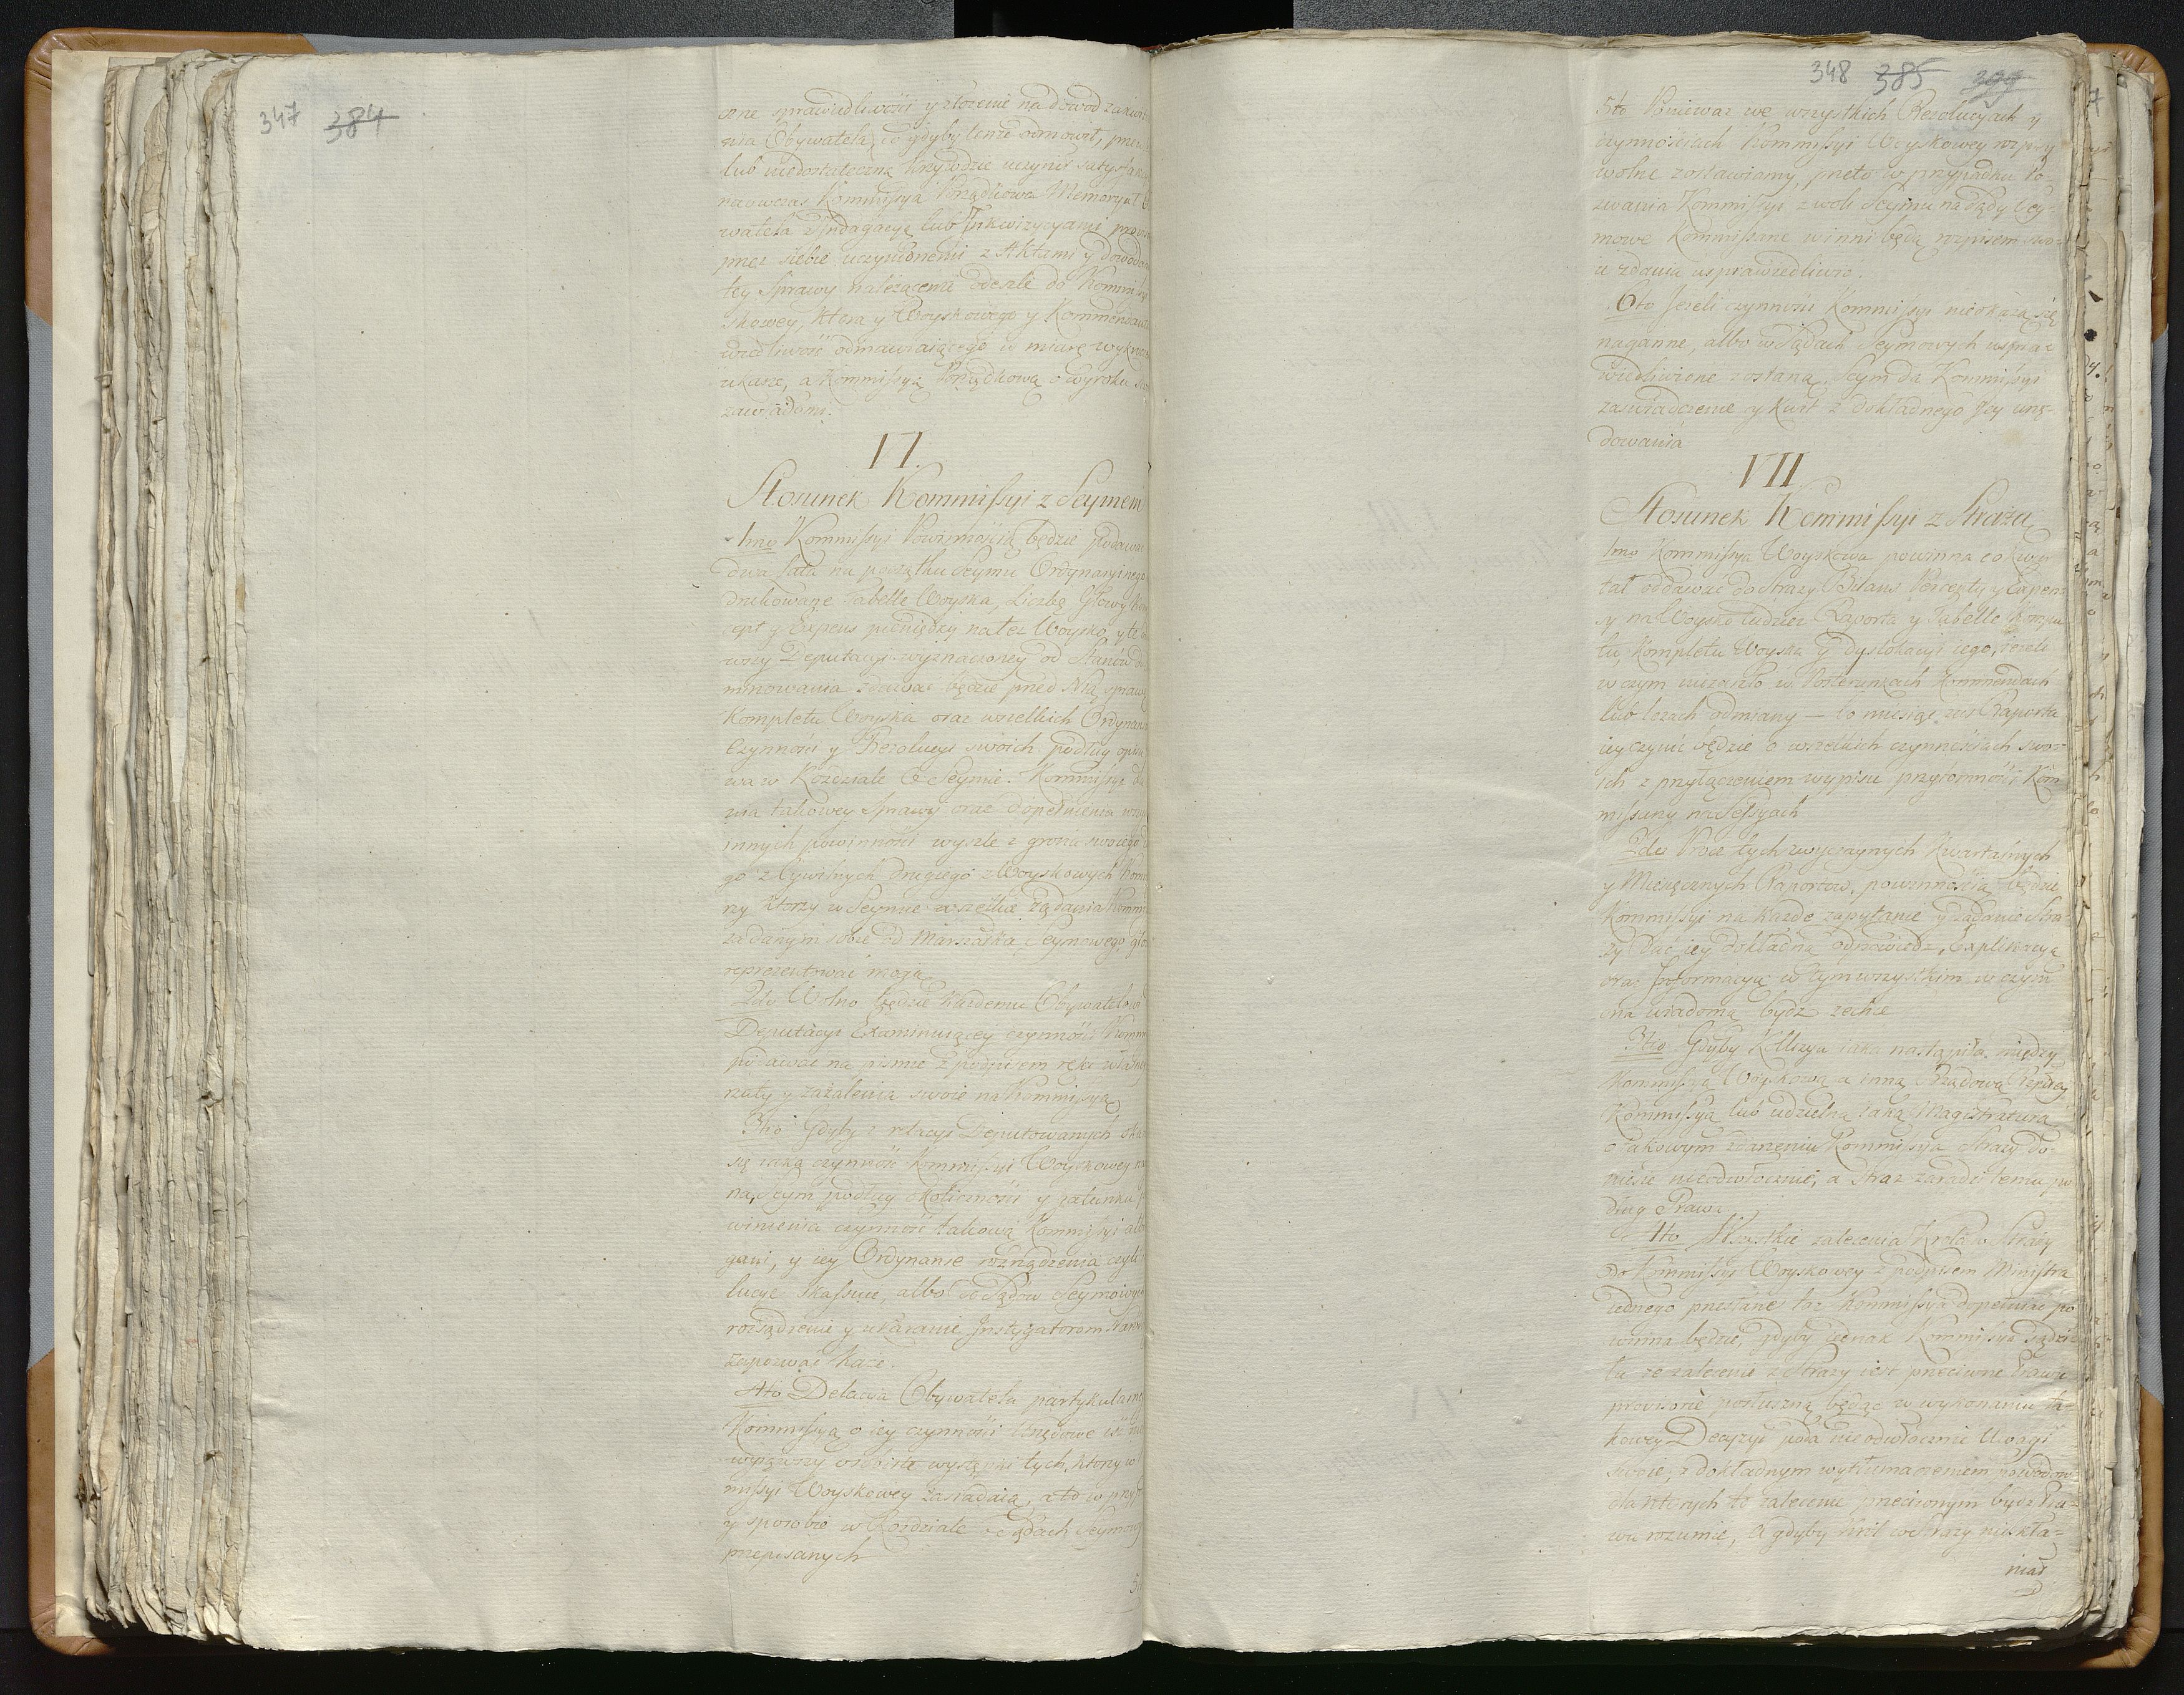 347 384
czne sprawiedliwości y złożenie na dowod zaskar
nia Obywatela, co gdyby tenże odmowił,
lub niedostateczną krzywdzie uczynił satysfak
naowczas Kommissya Porządkowa Memoryał
watela z Indagacyą lub Inkwizycyami
przez siebie uczynionemi z Aktami y dowod
tey Sprawy należącemi odeszle do Kommi
skowey, ktora y Woyskowego y Kommendan
wiedliwość odmawiaiącego w miarę wykro
ukarze, a Kommissyą Porządkową o wyroku
zawiadomi.
VI.
Stosunek Kommissyi z Seymem
1mo Kommissyi Powinnością będzie podawać
dwa lata na początku Seymu Ordynaryinego
drukowane Tabelle Woyska, Liczbę Głowy
cept y Expens pieniędzy na też Woysko, y te
wszy Deputacyi wyznaczoney od Stanów do
minowania zdawać będzie przed Nią sprawę
Kompletu Woyska oraz wszelkich Ordynan
Czynności y Rezolucyi swoich podług opisu
wa w Rozdziale o Seymie. Kommissya da
nia takowey Sprawy oraz dopełnienia
innych powinności wyszle z grona swoiego
go z Cywilnych drugiego z Woyskowych Kom
rzy ktorzy w Seymie wszelkie żądania Kommi
za danym sobie od Marszałka Seymowego gło
reprezentować mogą.
2do Wolno będzie każdemu Obywatelowi
Deputacyi Examinuiącey czynności Kommi
podawać na pismie z podpisem ręki własney
rzuty y zażalenia swoie na Kommissyą
3tio Gdyby z relacyi Deputowanych oka
się iaka czynność Kommissyi Woyskowey
na, Seym podług okoliczności y gatunku
winienia czynność takową Kommissyi albo
gani, y iey Ordynanse rozrządzenia czyli
lucye skassuie, albo do Sądów Seymowych
rozsądzenie y ukaranie Instygatorom Naro
zapozwać każe.
4to Delacya Obywatela partykularne
Kommissyą o iey czynności Urzędowe iść
wyiąwszy osobiste występki tych, ktorzy w
missyi Woyskowey zasiadaią, a to w przyp
y sposobie w Rozdziale o Sądach Seymowych
przepisanych
348 385 399
5to Ponieważ we wszystkich Rezolucyach y
czynnościach Kommissyi Woyskowey wpisy
wolne zostawiamy, przeto w przypadku Po-
zwania Kommissyi z woli Seymu na Sądy Sey-
mowe Kommissarze winni będą wpisem swo-
ie zdania usprawiedliwić.
6to Jeżeli czynności Kommissyi nieokażą się
naganne, albo w Sądach Seymowych uspra-
wiedliwione zostaną, Seym da Kommissyi
zaświadczenie y kwit z dokładnego Jey urzę-
dowania
VII
Stosunek Kommissyi z Strażą
1mo Kommissya Woyskowa powinna co kwar
tał oddawać do Straży Bilans Percepty y Expen
sy na Woysko tudzież Raporta y Tabelle Kompu
tu, Kompletu Woyska y dyslokacyi iego, ieżeli
w czym w Posterunkach Kommendach
lub leżach odmiany — Co miesiąc zaś Raporta
iey czynić będzie o wszelkich czynnościach swo-
ich z przyłączeniem wypisu przytomności Kom
missarzy na Sessyach
2do Procz tych zwyczaynych Kwartalnych
y Miesięcznych Raportów, powinnością będzie
Kommissyi na każde zapytanie y żądanie Stra-
ży dać iey dokładną odpowiedź, Explikacyą
oraz Informacyą w tym wszystkim w czym
ona wiadomą bydź zechce
3tio Gdyby Kollizya iaka nastąpiła między
Kommissyą Woyskową a inną Rządową Rzpltey
Kommissyą lub udzielną iaką Magistraturą
o takowym zdarzeniu Kommissya Straży do-
niesie nieodwłocznie, a Straż zaradzi temu po
dług Prawa
4to Wszystkie zalecenia Krola w Straży
do Kommissyi Woyskowey z podpisem Ministra
iednego przesłane taż Kommissya dopełniać po
winna będzie, gdyby iednak Kommissya sądzi
ła że zalecenie z Straży iest przeciwne Prawu
provisorie posłuszną będąc w wykonaniu ta-
kowey Decyzyi poda nieodwłocznie Uwagi
swoie, z dokładnym wytłumaczeniem powodow
dla ktorych to zalecenie przeciwnym bydź Pra-
wu rozumie, A gdyby Krol w Straży nieskła-
niał